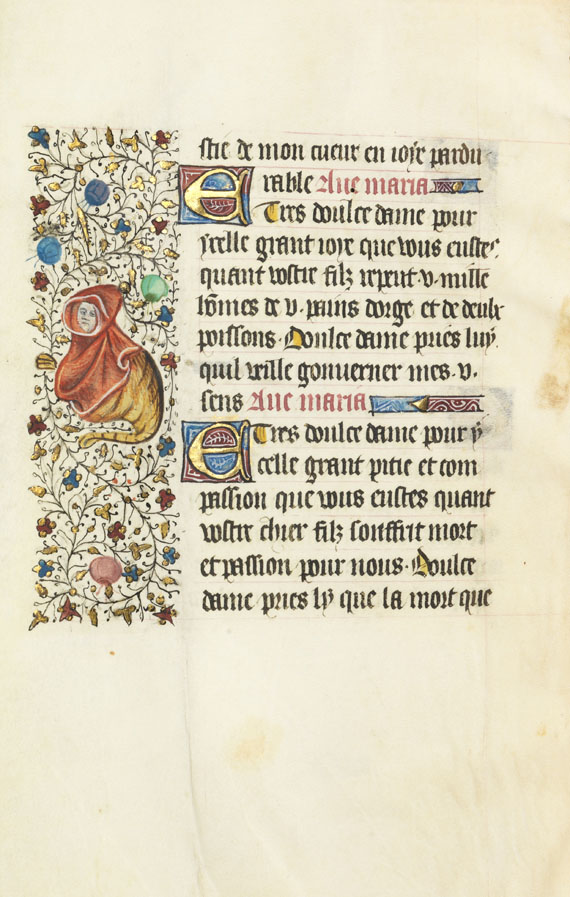 stie de mon cueur en ioye pardu
rable Aue maria
E Tres doulce dame pour
ycelle grant ioye que vous eustes
quant vostre filz repeut ·v· mille
hõmes de ·v· pains dorge et de deulx
poissons · Doulce dame pries luy
quil veille gouuerner mes ·v·
sens Aue maria
E Tres doulce dame pour y
celle grant pitie et com
passion que vous eustes quant
vostre chier filz souffrit mort
et passion pour nous · Doulce
dame pries ly que la mort que